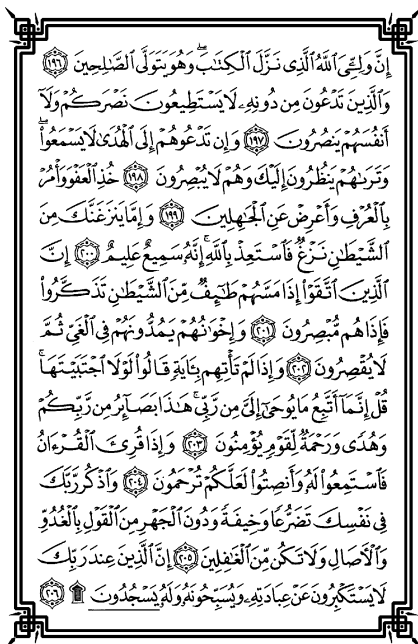 إِنَّ وَلِۦِّىَ ٱللَّهُ ٱلَّذِى نَزَّلَ ٱلْكِتَٰبَ ۖ وَهُوَ يَتَوَلَّى ٱلصَّٰلِحِينَ ١٩٦
وَٱلَّذِينَ تَدْعُونَ مِن دُونِهِۦ لَا يَسْتَطِيعُونَ نَصْرَكُمْ وَلَآ
أَنفُسَهُمْ يَنصُرُونَ ١٩٧ وَإِن تَدْعُوهُمْ إِلَى ٱلْهُدَىٰ لَا يَسْمَعُوا۟ ۖ
وَتَرَىٰهُمْ يَنظُرُونَ إِلَيْكَ وَهُمْ لَا يُبْصِرُونَ ١٩٨ خُذِ ٱلْعَفْوَ وَأْمُرْ
بِٱلْعُرْفِ وَأَعْرِضْ عَنِ ٱلْجَٰهِلِينَ ١٩٩ وَإِمَّا يَنزَغَنَّكَ مِنَ
ٱلشَّيْطَٰنِ نَزْغٌ فَٱسْتَعِذْ بِٱللَّهِ ۚ إِنَّهُۥ سَمِيعٌ عَلِيمٌ ٢٠٠ إِنَّ
ٱلَّذِينَ ٱتَّقَوْا۟ إِذَا مَسَّهُمْ طَٰٓئِفٌ مِّنَ ٱلشَّيْطَٰنِ تَذَكَّرُوا۟
فَإِذَا هُم مُّبْصِرُونَ ٢٠١ وَإِخْوَٰنُهُمْ يَمُدُّونَهُمْ فِى ٱلْغَىِّ ثُمَّ
لَا يُقْصِرُونَ ٢٠٢ وَإِذَا لَمْ تَأْتِهِم بِـَٔايَةٍ قَالُوا۟ لَوْلَا ٱجْتَبَيْتَهَا ۚ
قُلْ إِنَّمَآ أَتَّبِعُ مَا يُوحَىٰٓ إِلَىَّ مِن رَّبِّى ۚ هَٰذَا بَصَآئِرُ مِن رَّبِّكُمْ
وَهُدًى وَرَحْمَةٌ لِّقَوْمٍ يُؤْمِنُونَ ٢٠٣ وَإِذَا قُرِئَ ٱلْقُرْءَانُ
فَٱسْتَمِعُوا۟ لَهُۥ وَأَنصِتُوا۟ لَعَلَّكُمْ تُرْحَمُونَ ٢٠٤ وَٱذْكُر رَّبَّكَ
فِى نَفْسِكَ تَضَرُّعًا وَخِيفَةً وَدُونَ ٱلْجَهْرِ مِنَ ٱلْقَوْلِ بِٱلْغُدُوِّ
وَٱلْـَٔاصَالِ وَلَا تَكُن مِّنَ ٱلْغَٰفِلِينَ ٢٠٥ إِنَّ ٱلَّذِينَ عِندَ رَبِّكَ
لَا يَسْتَكْبِرُونَ عَنْ عِبَادَتِهِۦ وَيُسَبِّحُونَهُۥ وَلَهُۥ يَسْجُدُونَ ۩ ٢٠٦